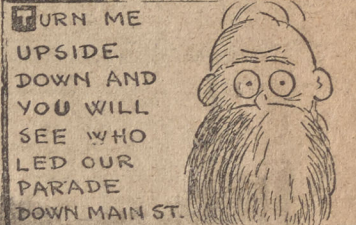 TURN ME
UPSIDE
DOWN AND
YOU WILL
SEE WHO
LED OUR
PARADE
DOWN MAIN ST.